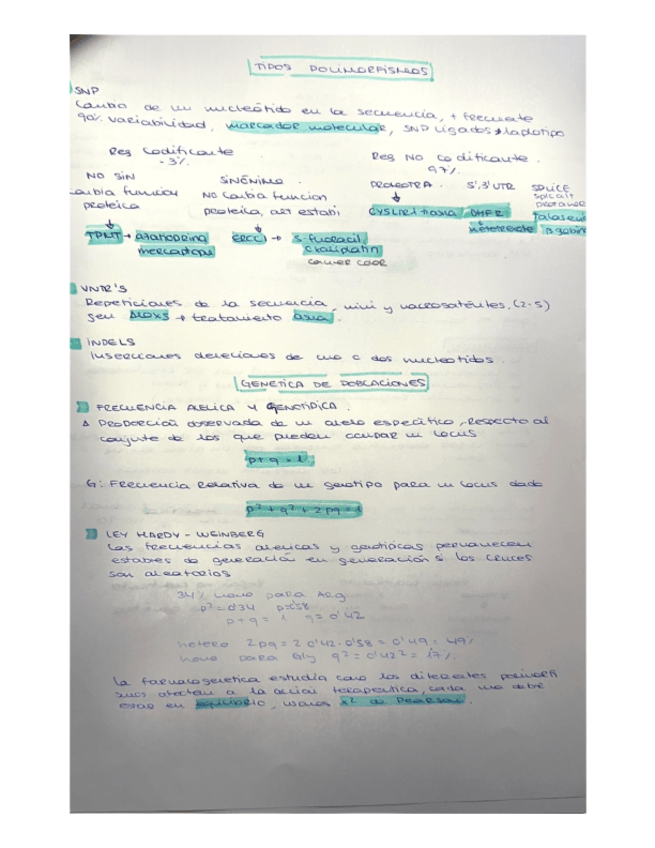 TIPOS POLIMORFISMOS
SNP
Cambio de un nucleótido en la secuencia, + frecuente
90% variabilidad, marcador molecular, SNP ligados → haplotipo
Reg Codificante
~3%
Reg No codificante.
97%
NO SIN
cambia funcion
proteica
SINÓNIMO
NO Cambia funcion
proteica, estabi
PROMOTRA.
5', 3' UTR
SPLICE
TPMT → azatioprina
mercaptopu
ERCC1 → 5-fluoracil,
oxaliplatin
cancer color
CYSLTR1 → asma
DHFR
metotrexate
Talasemi
B globin
VNTR'S
Repeticiones de la secuencia, mini y microsatélites, (2-5)
gen ALOX5 → tratamiento asma.
INDELS
Inserciones deleciones de uno o dos nucleotidos.
GENETICA DE POBLACIONES
FRECUENCIA ALELICA Y GENOTIPICA.
A Proporción observada de un alelo especifico, respecto al
conjunto de los que pueden ocupar un locus
p+q = 1
G: Frecuencia Relativa de un genotipo para un locus dado
p² + q² + 2pq = 1
LEY HARDY - WEINBERG
Las frecuencias alelicas y genotipicas permanecen
estables de generación en generación si los cruces
son aleatorios
34% homo para Arg
p² = 0'34 p=0'58
p+q = 1 q = 0'42
hetero 2pq = 2·0'42·0'58 = 0'49 = 49%
homo para Gly q² = 0'42² = 17%
La farmacogenetica estudia como los diferentes polimorfi
smos afectan a la accion terapeutica, cada uno debe
estar en equilibrio, usamos x² de Pearson.